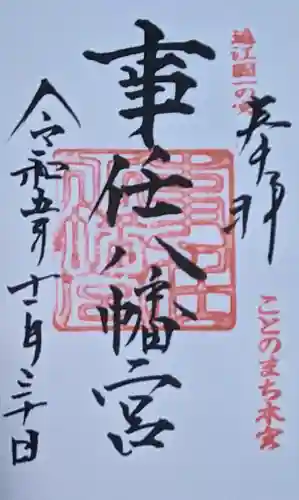 遠江國一の宮
奉拝
ことのまち本宮
事任八幡宮
令和五年十一月三十日